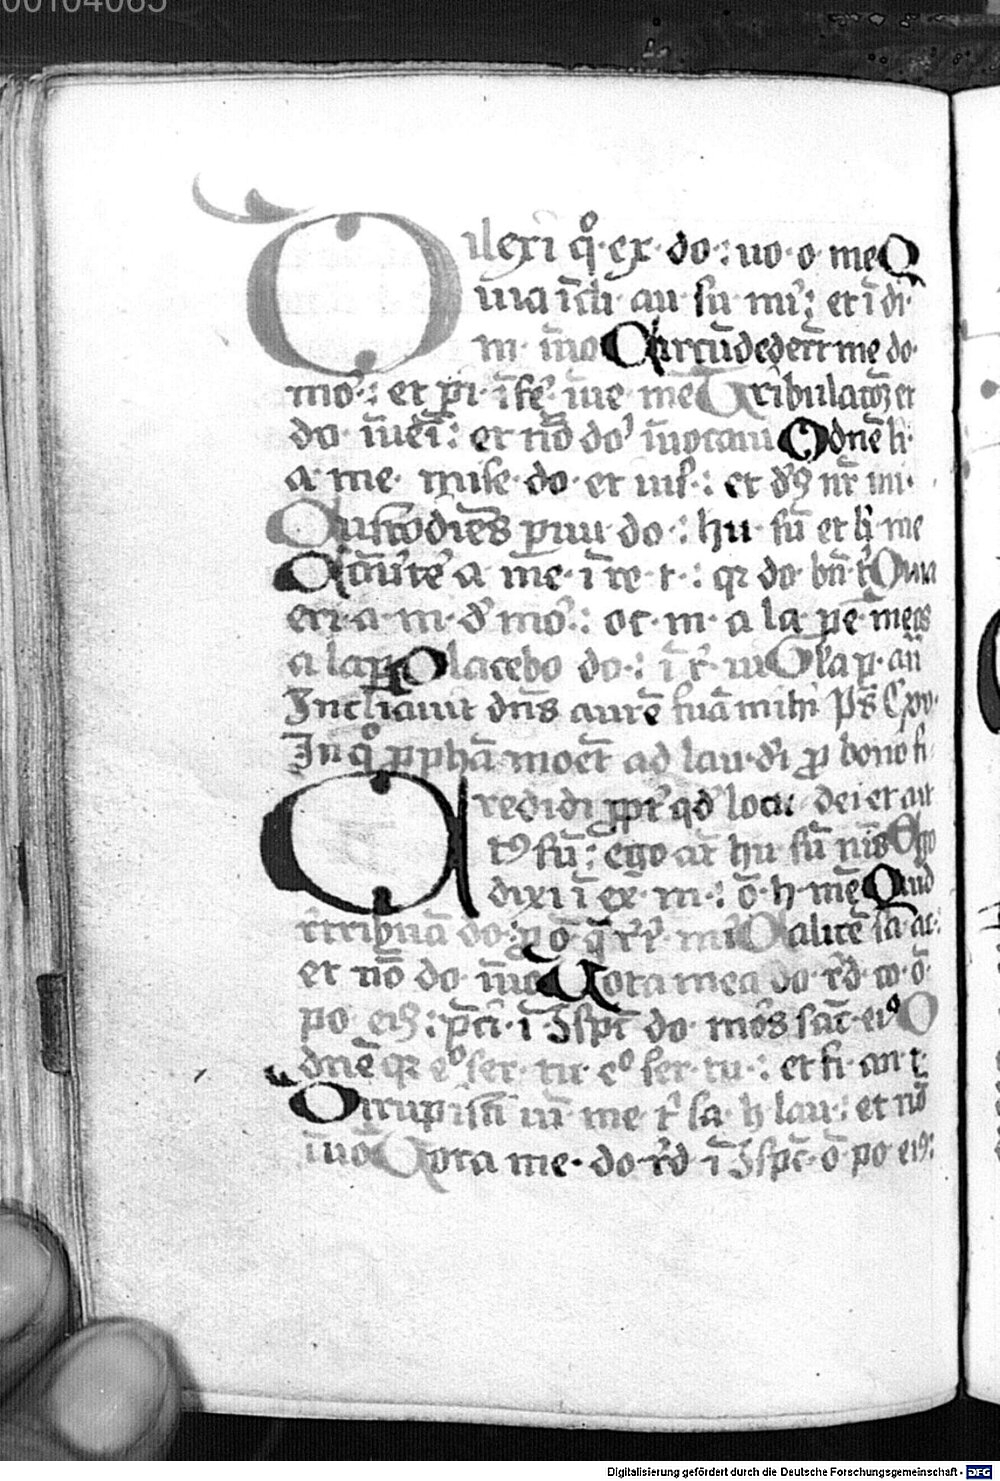 00104065
Dilexi qº· ex· do·: uo· o· me Q
uia īcli· au· su· mi⁊; et ī di·
m· īuo Circūdederūt me do·
mo·: et pi· īfe· īue· me Tribulacōꝫ et
do· īueī: et nō do' īuocaui O dnē li·
a· me· mise· do· et ius·: et dꝰ nr̄ mi·
Custodiēs paru· do·: hu· sū et li· me
a· me· ī re· t·: qꝛ do· bn̄· t' Quia
eri· a· m· d' mo'·: oc· m· a la· pe· meos
a lap Placebo do·: ī r· ui Gl'a p· an̄
Inclinauit dn̄s aurē suā mihi Ps̄ Cxv·
In qº ad lau· di ꝓ bono
Credidi ppt' qd' locu· dei et
tꝰ sū: ego aūt hu· sū nīs Ego
dixi ī ex· m·: ō· h· mē Quid
retribuā do· ꝓ ō q̄ r'r'· mi' Calicē sa· ac·:
et nō do· īuo Uota mea do· r'd· co· ō·
po· eiꝰ: p̄ci· ī ꝯspc̄ do· mors sāc· eiº O
dnē qꝛ eº ser· tu· eº ser· tu·: et fi· an· t·
Dirupisti ui· me· t' sa· h· lau·: et nō
īuō Uota me· do· r'd ī ꝯspc̄· ō· po· eiꝰ:
Digitalisierung gefördert durch die Deutsche Forschungsgemeinschaft - DFG